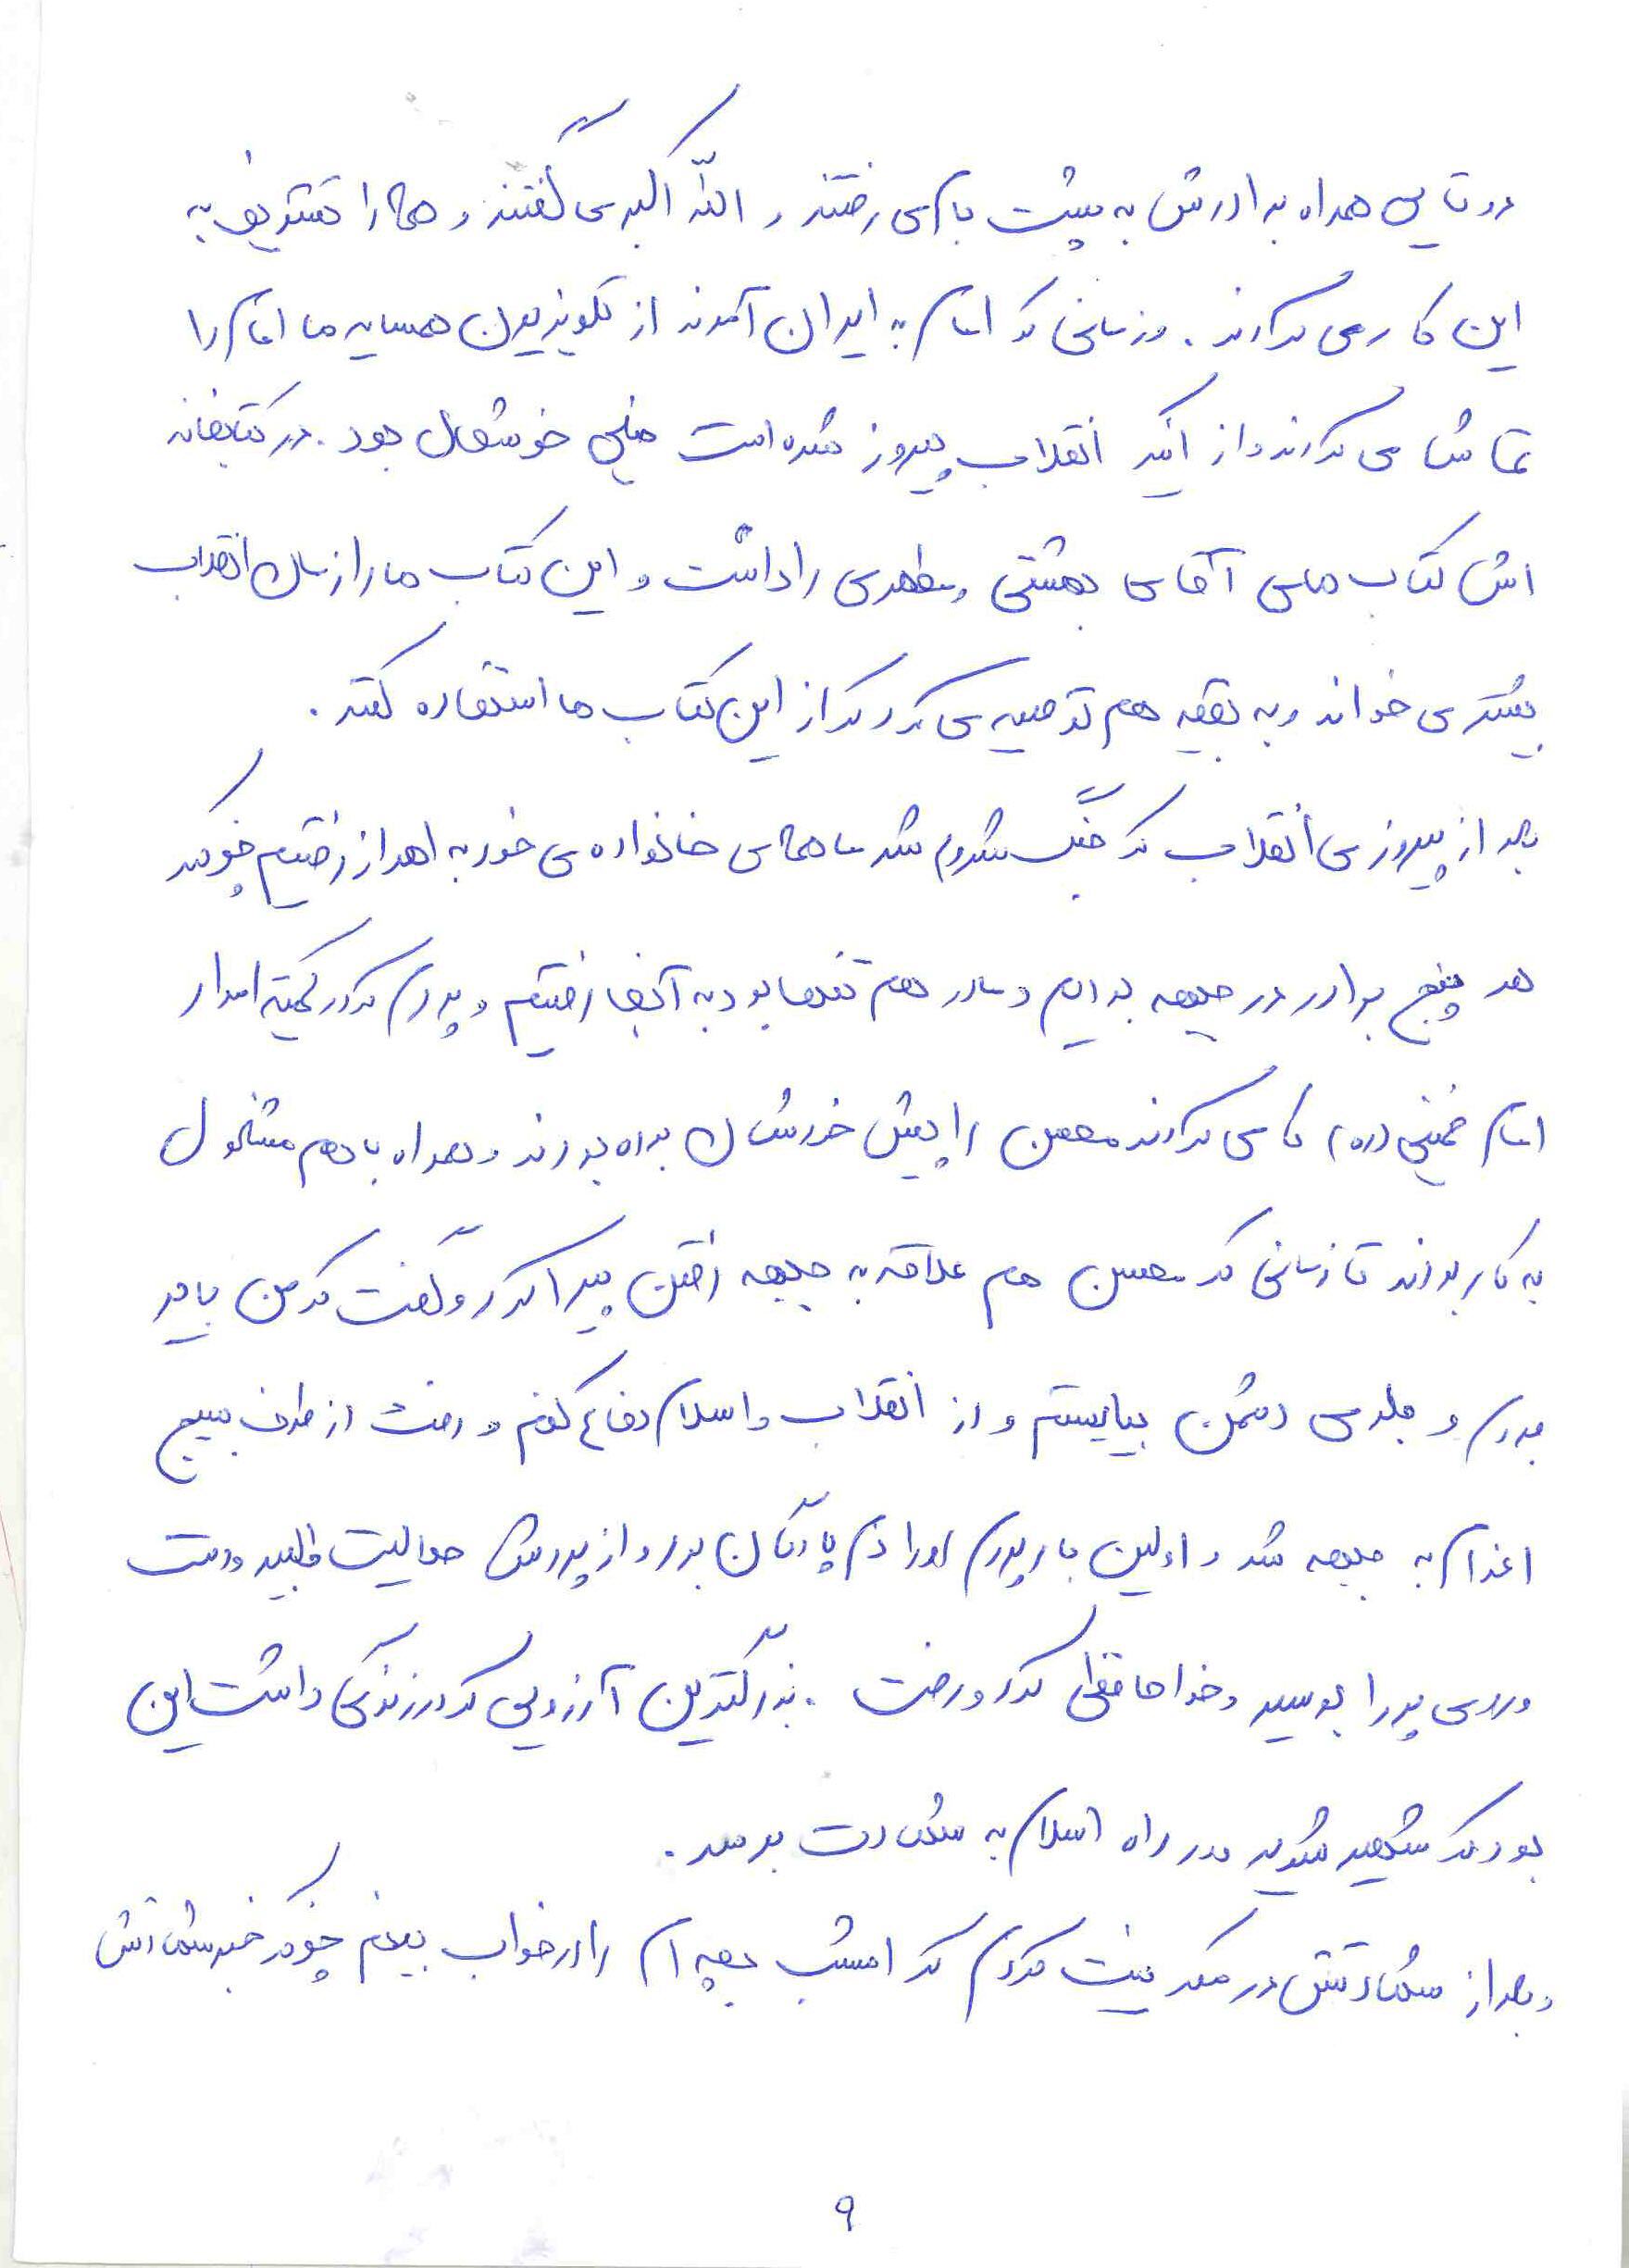 دوتایی همراه برادرش به پشت بام می رفتند و الله اکبر می گفتند و همه را تشویق به
این کار می کردند. و زمانی که امام به ایران آمدند از تلویزیون همسایه ما امام را
تماشا می کردند و از اینکه انقلاب پیروز شده است خیلی خوشحال بود. در کتابخانه
اش کتاب های آقای بهشتی و مطهری را داشت و این کتاب ها را از سال انقلاب
بیشتر می خواند و به بقیه هم توصیه می کرد که از این کتاب ها استفاده کنند.
بعد از پیروزی انقلاب که جنگ شروع شد ما همه ی خانواده ی خود به اهواز رفتیم چونکه
هر پنج برادر در جبهه بودیم و مادر هم تنها بود به آنجا رفتیم و پدرم که در کمیته امداد
امام خمینی (ره) کار می کردند محسن را پیش خودشان برده بودند و همراه با هم مشغول
به کار بودند تا زمانی که محسن هم علاقه به جبهه رفتن پیدا کرد و گفت که من باید
بروم و جلوی دشمن بایستم و از انقلاب و اسلام دفاع کنم و رفت از طرف بسیج
اعزام به جبهه شد و اولین بار پدرم او را دم پادگان برد و از پدرش حلالیت طلبید و دست
و روی پدر را بوسید و خداحافظی کرد و رفت. بزرگترین آرزویی که در زندگی داشت این
بود که شهید شود و در راه اسلام به شهادت برسد.
و بعد از شهادتش در مکه نیت کردم که امشب بچه ام را در خواب ببینم چونکه خبر شهادتش
۹